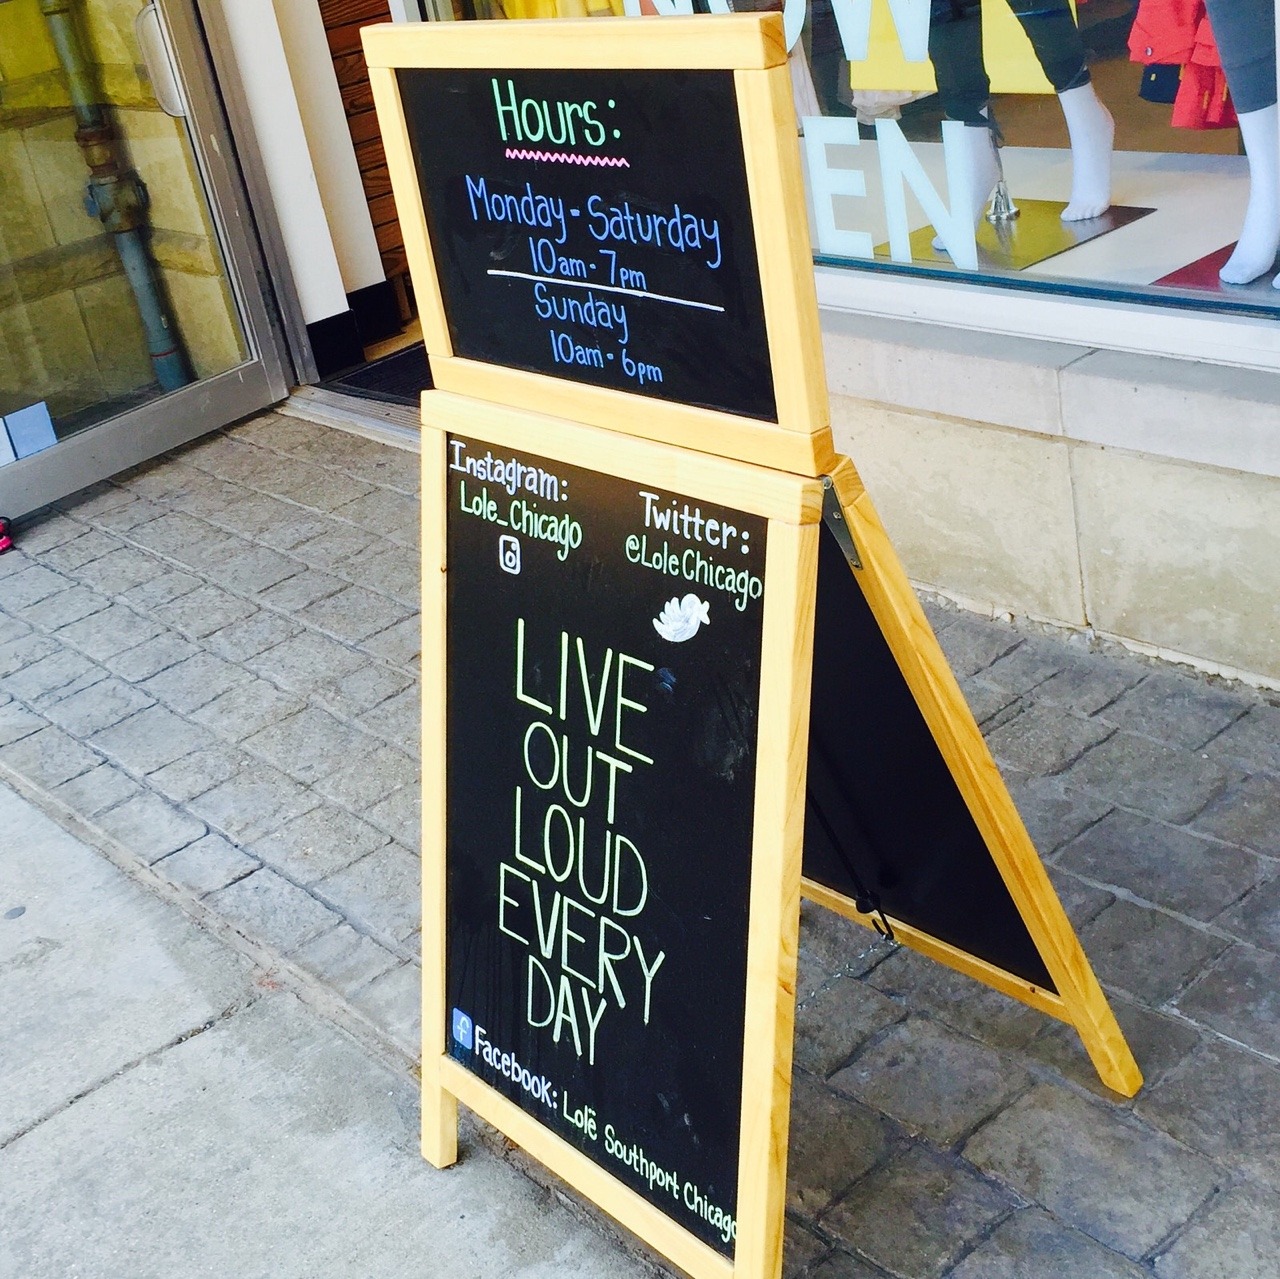 Hours:
Monday-Saturday
10am-7pm
Sunday
10am-6pm
Instagram:
Lole_Chicago
Twitter:
@LoleChicago
LIVE
OUT
LOUD
EVERY
DAY
f Facebook: Lolë Southport Chicago